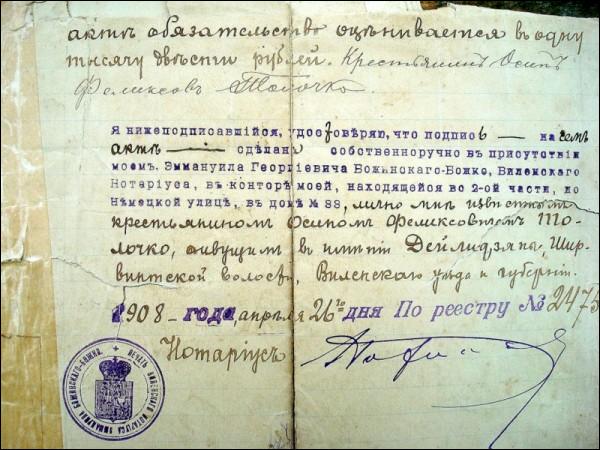 актъ обязательство оцѣнивается въ одну
тысячу двѣсти рублей. Крестьянинъ Осипъ
Феликсовъ Толочко.
Я нижеподписавшійся, удостовѣряю, что подпись — на семъ
актѣ — сдѣлана собственноручно въ присутствіи
моемъ, Эммануила Георгіевича Божинскаго-Божко, Виленскаго
Нотаріуса, въ конторѣ моей, находящейся во 2-ой части, по
Нѣмецкой улицѣ, въ домѣ № 38, лично мнѣ извѣстнымъ
крестьяниномъ Осипомъ Феликсовичемъ То-
лочко, живущимъ въ имѣніи Дейлидзяны, Шир-
винтской волости, Виленскаго уѣзда и губерніи.
1908 - года, апрѣля 26го дня По реестру № 2475
Нотаріусъ
ПЕЧАТЬ ВИЛЕНСКАГО НОТАРІУСА ЭММАНУИЛА БОЖИНСКАГО-БОЖКО